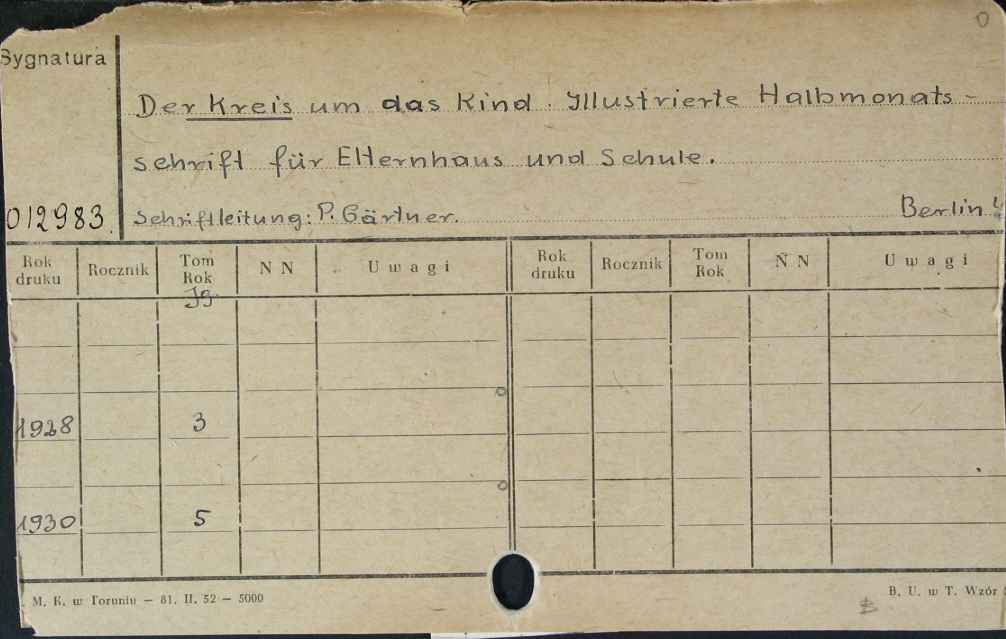 0
Sygnatura
Der Kreis um das Kind. Illustrierte Halbmonats-
schrift für Elternhaus und Schule.
012983. Schriftleitung: P. Gärtner. Berlin
Rok druku Rocznik Tom Rok N N U w a g i Rok druku Rocznik Tom Rok N N U w a g i
Jg
1928 3
1930 5
M. K. w Toruniu — 81. II. 52 — 5000 B. U. w T. Wzór